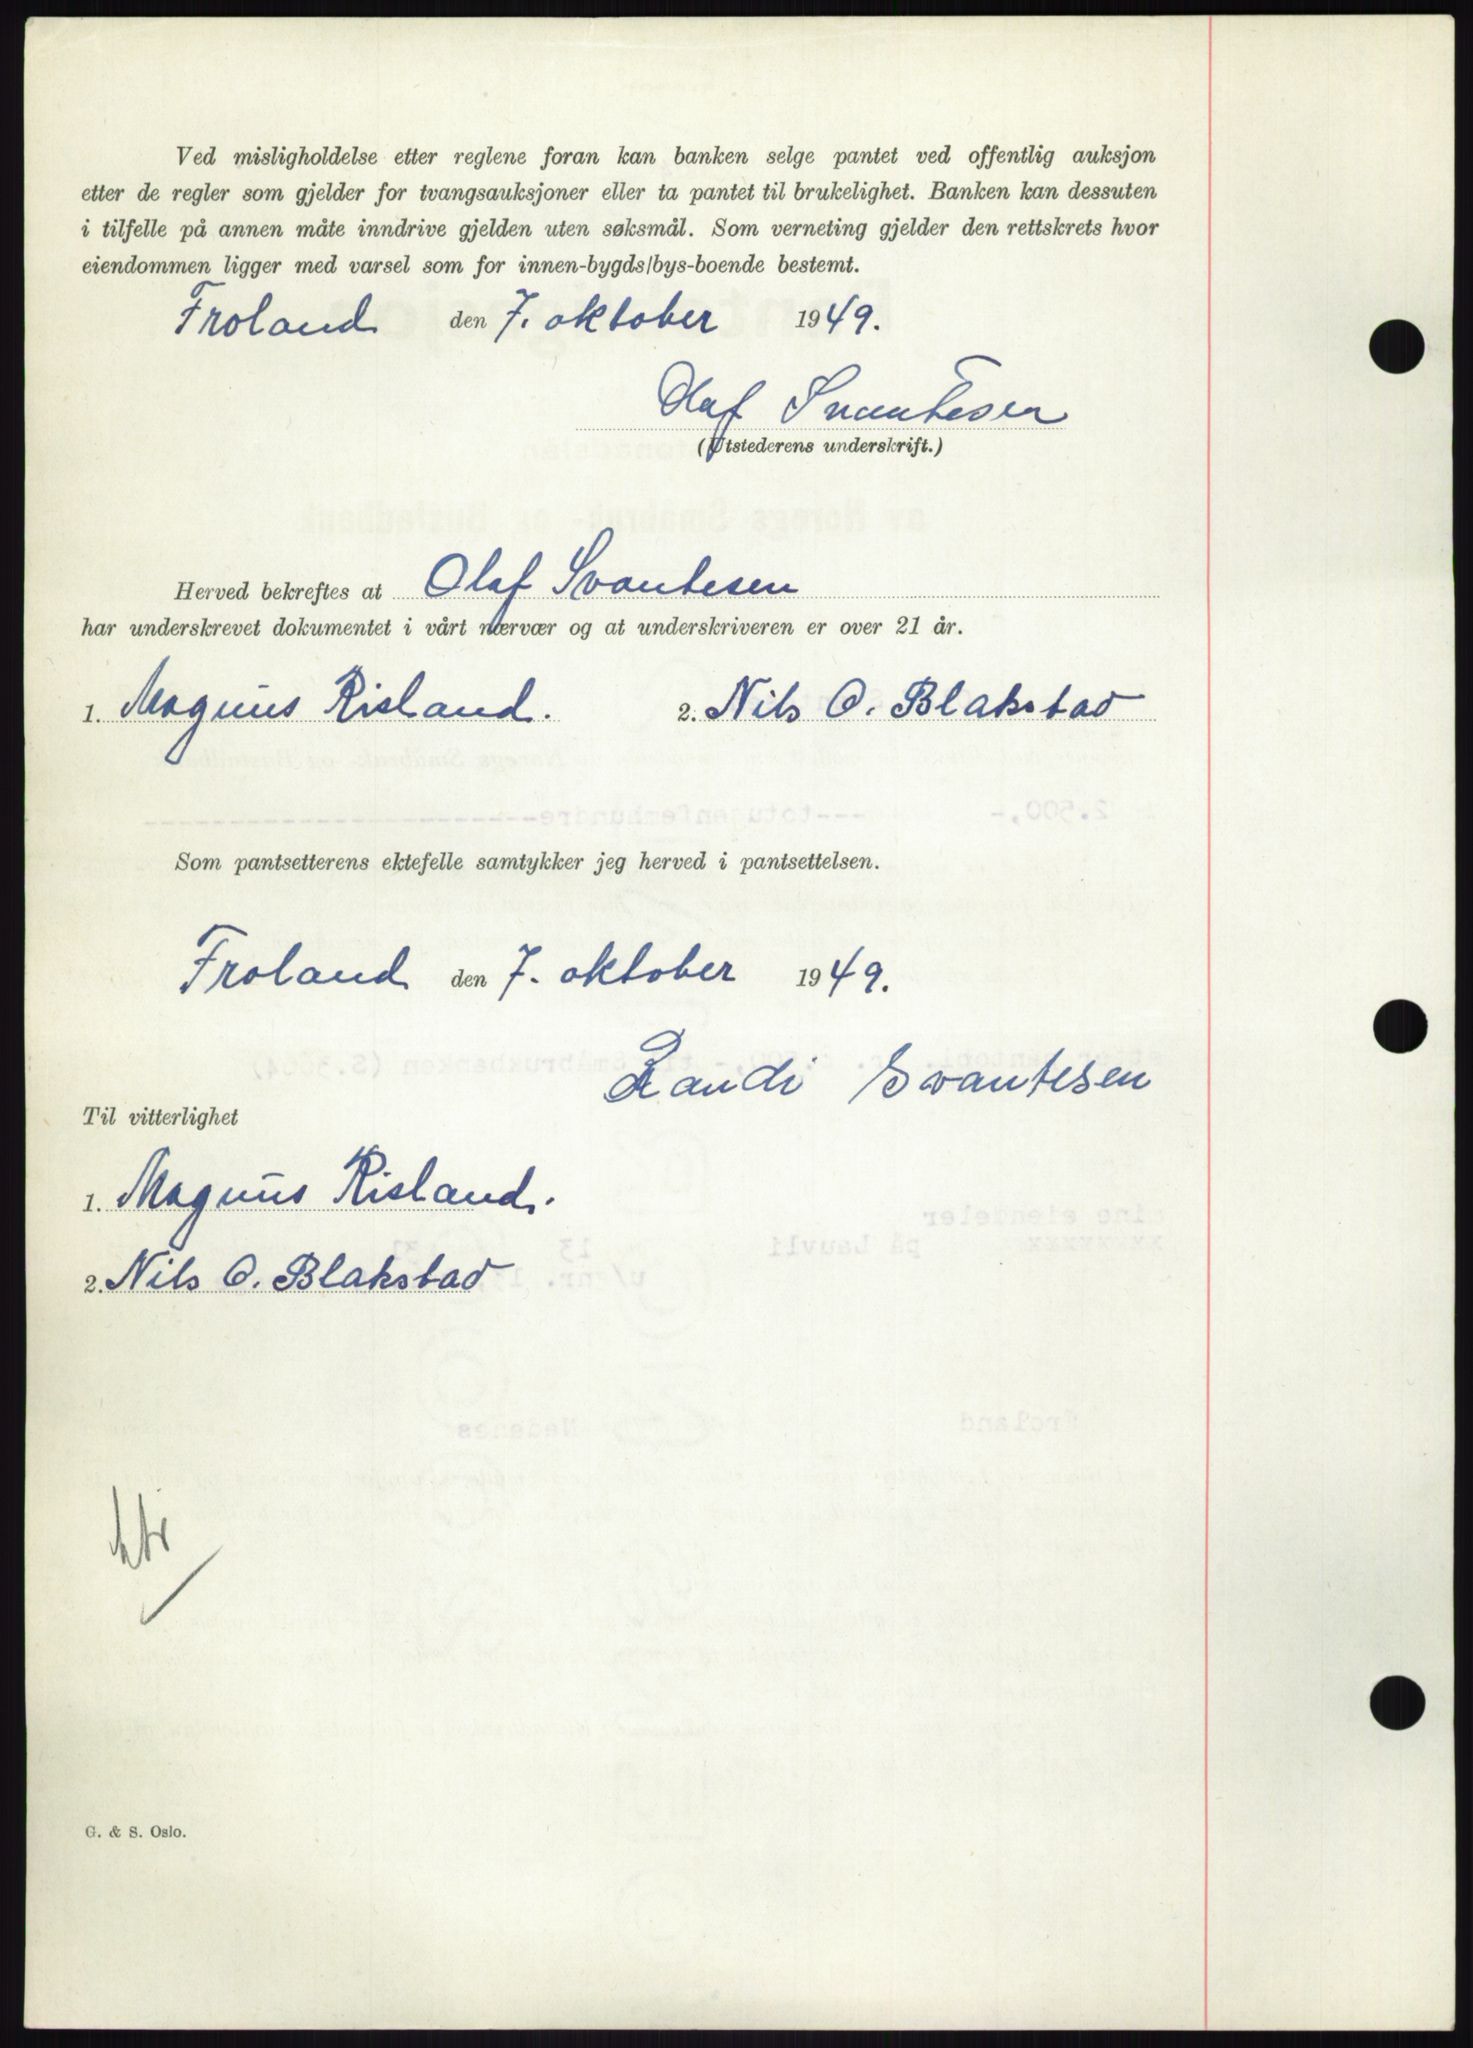 Ved misligholdelse etter reglene foran kan banken selge pantet ved offentlig auksjon
etter de regler som gjelder for tvangsauksjoner eller ta pantet til brukelighet. Banken kan dessuten
i tilfelle på annen måte inndrive gjelden uten søksmål. Som verneting gjelder den rettskrets hvor
eiendommen ligger med varsel som for innen-bygds/bys-boende bestemt.
Froland den 7. oktober 1949.
Olaf Svantesen
(Utstederens underskrift.)
Herved bekreftes at Olaf Svantesen
har underskrevet dokumentet i vårt nærvær og at underskriveren er over 21 år.
1. Magnus Risland. 2. Nils O. Blakstad
Som pantsetterens ektefelle samtykker jeg herved i pantsettelsen.
Froland den 7. oktober 1949.
Randi Svantesen
Til vitterlighet
1. Magnus Risland.
2. Nils O. Blakstad
G. & S. Oslo.